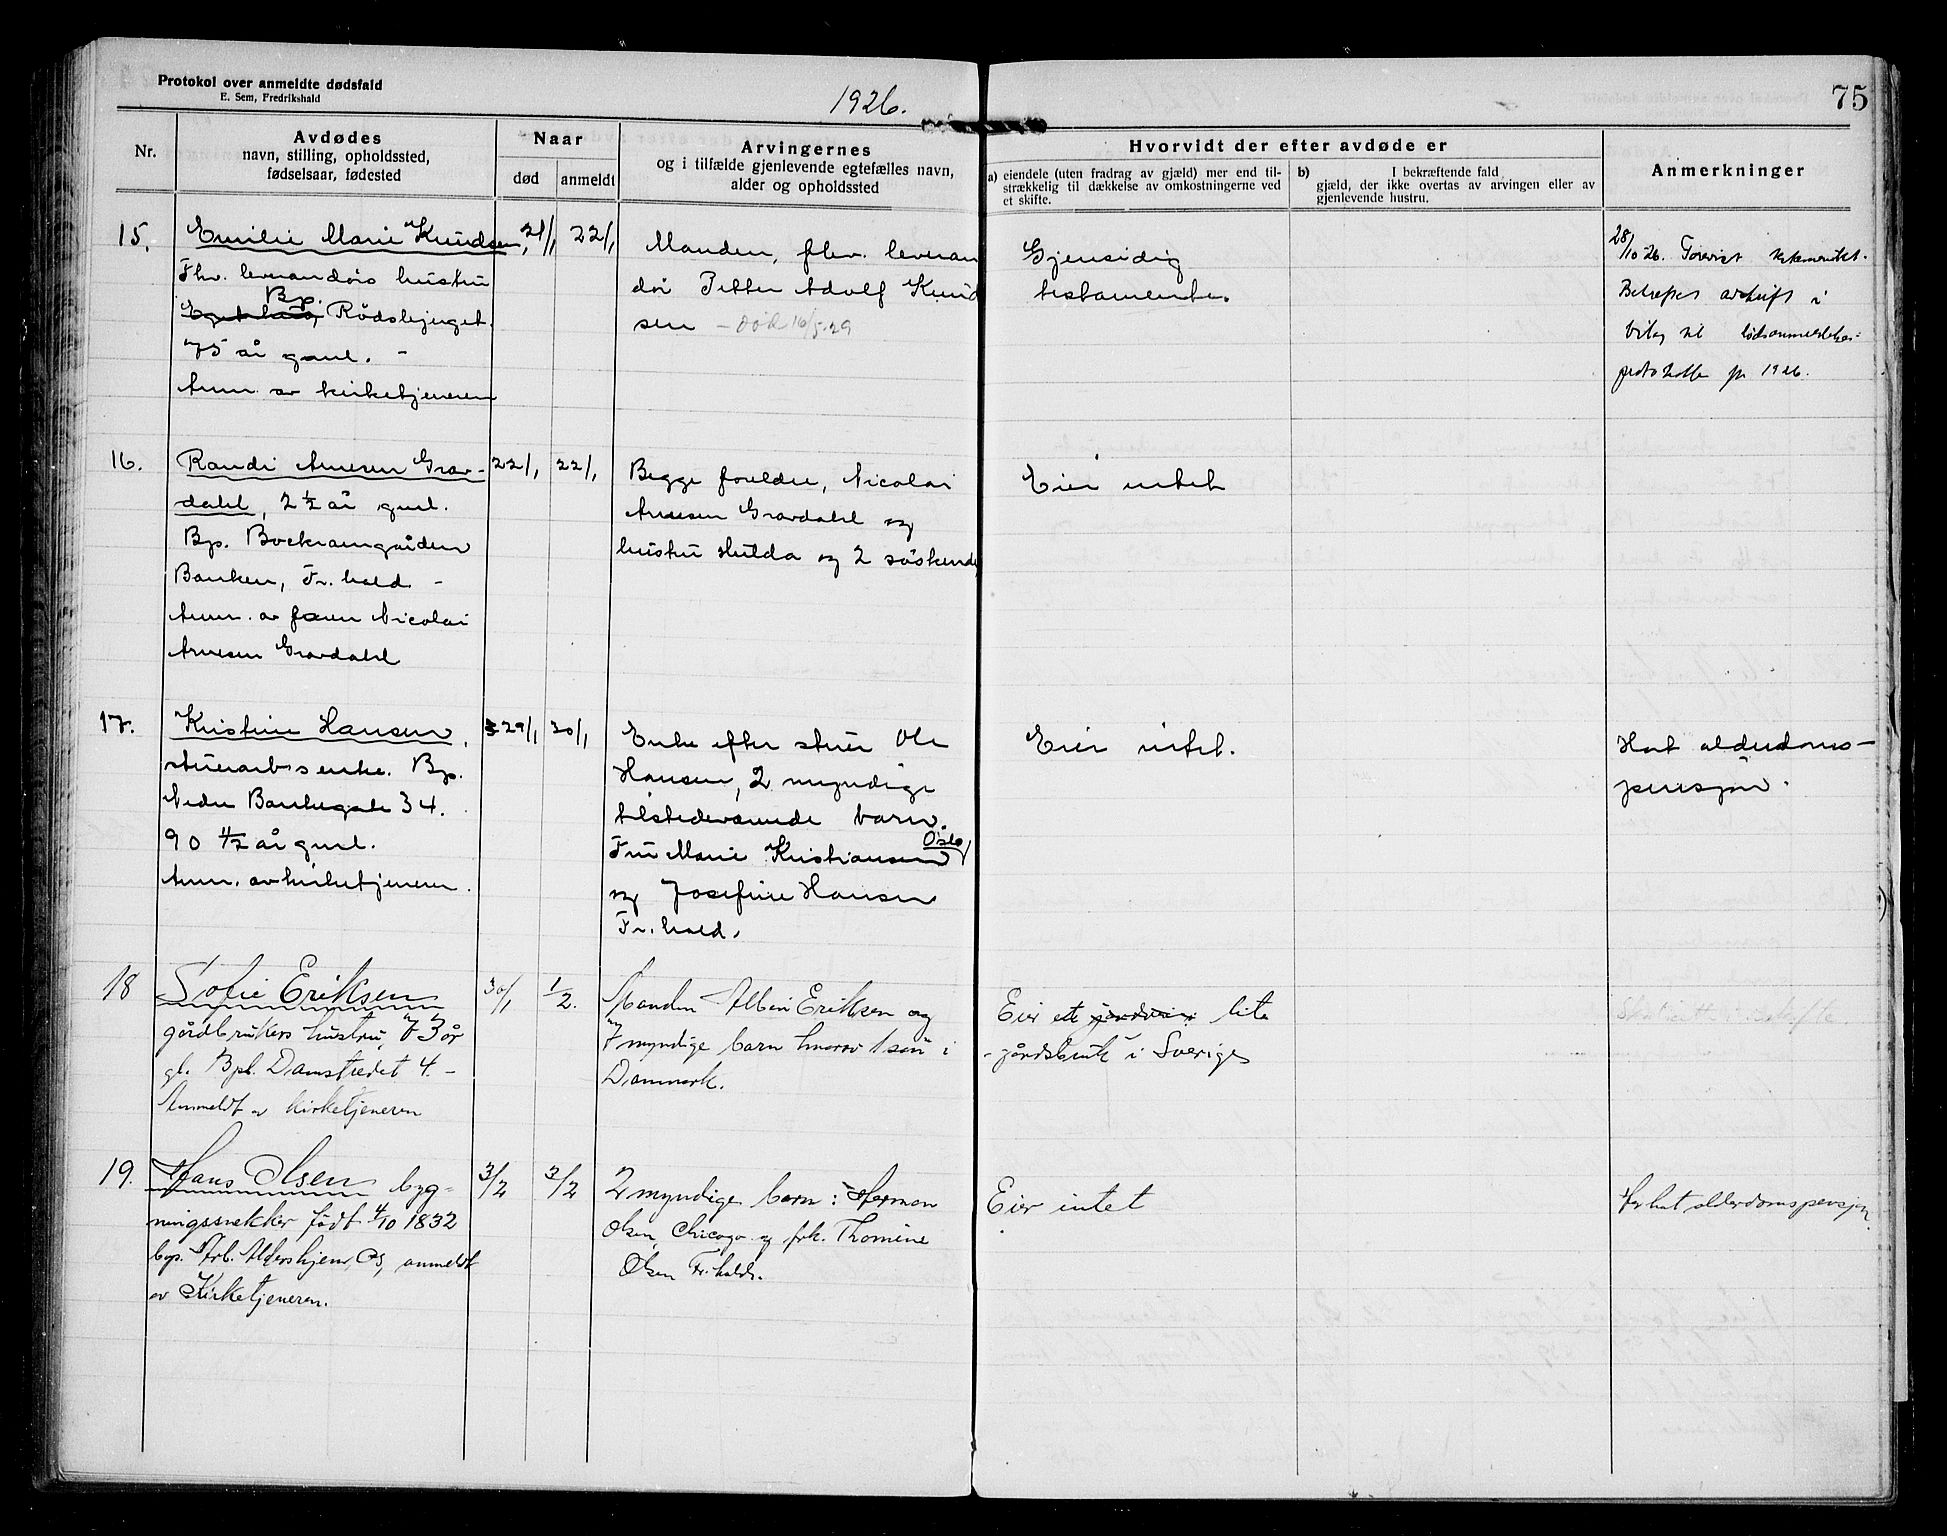 Protokol over anmeldte dødsfald
E. Sem, Fredrikshald
1926.
75
Nr.
Avdødes
navn, stilling, opholdssted,
fødselsaar, fødested
Naar
død
anmeldt
Arvingernes
og i tilfælde gjenlevende egtefælles navn,
alder og opholdssted
Hvorvidt der efter avdøde er
a) eiendele (uten fradrag av gjæld) mer end til-
strækkelig til dækkelse av omkostningerne ved
et skifte.
b) I bekræftende fald
gjæld, der ikke overtas av arvingen eller av
gjenlevende hustru.
Anmerkninger
15.
Emilie Marie Knudsen,
Fhv. leverandørs hustru
Bp.
Eget hus, Rødsbjerget.
75 år gml. -
Anm. av kirketjeneren
21/1
22/1
Manden, fhv. leveran
dør Petter Adolf Knud
sen - død 16/5.29
Gjensidig
testamente.
28/10 26. Forevist
Bekræftet avskrift i
bilag til dødsanmeldelses-
protokollen for 1926.
16.
Randi Arnesen Grav-
dahl, 2 ½ år gml.
Bp. Bockramgården
Banken, Fr.hald -
Anm. av faren Nicolai
Arnesen Gravdahl
22/1
22/1
Begge foreldre, Nicolai
Arnesen Gravdahl og
hustru Hulda og 2 søskende
Eier intet
17.
Kristine Hansen,
stuerarb.s enke. Bp.
Nedre Bankegate 34.
90 ½ år gml.
Anm. av kirketjeneren.
29/1
30/1
Enke efter stuer Ole
Hansen, 2 myndige
tilstedeværende barn.
Fru Marie Kristiansen Oslo,
og Josefine Hansen
Fr.hald.
Eier intet.
Hat alderdoms-
pensjon.
18
Sofie Eriksen
gårdbrukers hustru, 73 år
gl. Bpl. Damstredet 4. -
Anmeldt av kirketjeneren
30/1
1/2.
Manden Albin Eriksen og
7 myndige barn hvorav 1 søn i
Danmark.
Eier et lite
gårdsbruk i Sverige
19.
Hans Olsen byg-
ningssnekker født 4/10 1832
bop. Arb. Aldershjem, Os, anmeldt
av Kirketjeneren.
3/2
3/2
2 myndige barn: Herman
Olsen, Chicago og frk. Thomine
Olsen Fr.hald.
Eier intet
Har hat alderdomspensjon